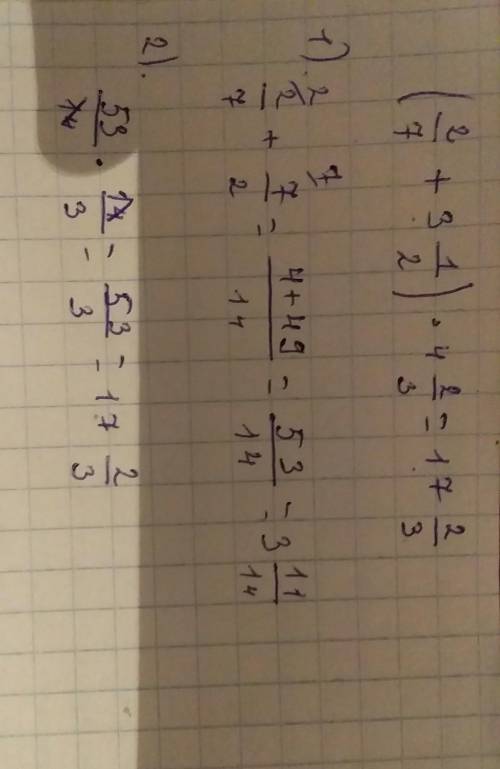 (2/7 + 3 1/2) · 4 2/3 = 17 2/3
1) 2/7 + 7/2 = 4+49/14 = 53/14 = 3 11/14
2). 53/14 · 14/3 = 53/3 = 17 2/3